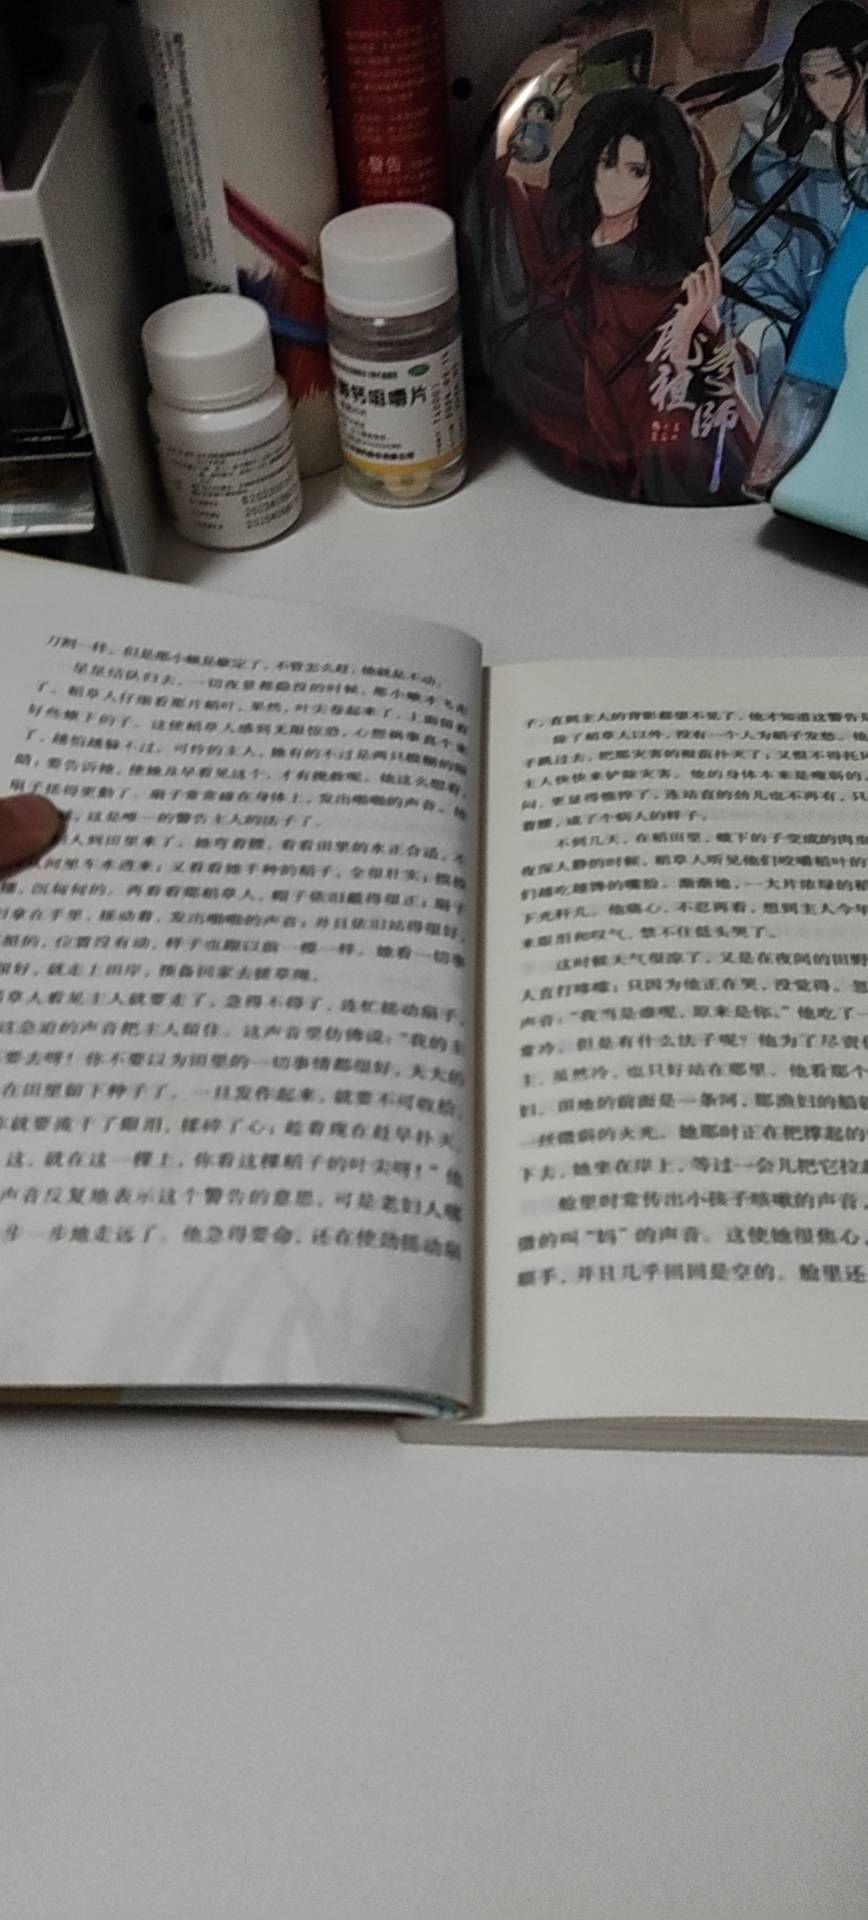 警告
钙咀嚼片
魔道祖师
刀割一样。但是那小蛾是拿定了,不管怎么赶,他就是不动。
星星结队归去,一切夜景都隐没的时候,那小蛾才飞走
了。稻草人仔细看那片稻叶,果然,叶尖卷起来了,上面留着
好些蛾下的子。这使稻草人感到无限惊恐,心想祸事真个来
了,越怕越躲不过。可怜的主人,她有的不过是两只模糊的眼
睛;要告诉她,使她及早看见这个,才有挽救呢。他这么想着,
扇子摇得更勤了。扇子常常碰在身体上,发出啪啪的声音。他
,这是唯一的警告主人的法子了。
人到田里来了。她弯着腰,看看田里的水正合适,不
从河里车水进来;又看看她手种的稻子,全很壮实;摸摸
穗,沉甸甸的。再看看那稻草人,帽子依旧戴得很正;扇子
旧拿在手里,摇动着,发出啪啪的声音;并且依旧站得很好,
挺的,位置没有动,样子也跟以前一模一样。她看一切事
很好,就走上田岸,预备回家去搓草绳。
草人看见主人就要走了,急得不得了,连忙摇动扇子,
这急迫的声音把主人留住。这声音里仿佛说:“我的主
要去呀!你不要以为田里的一切事情都很好,天大的
在田里留下种子了。一旦发作起来,就要不可收拾,
你就要流干了眼泪,揉碎了心;趁着现在赶早扑灭,
这,就在这一棵上,你看这棵稻子的叶尖呀!”他
声音反复地表示这个警告的意思,可是老妇人哪
步一步地走远了。他急得要命,还在使劲摇动扇
子,直到主人的背影都望不见了,他才知道这警告是
除了稻草人以外,没有一个人为稻子发愁。他
子跳过去,把那灾害的根苗扑灭了;又恨不得托风
主人快快来铲除灾害。他的身体本来是瘦弱的,
闷,更显得憔悴了,连站直的劲儿也不再有,只
着腰,成了个病人的样子。
不到几天,在稻田里,蛾下的子变成的肉虫
夜深人静的时候,稻草人听见他们咬嚼稻叶的
们越吃越馋的嘴脸。渐渐地,一大片浓绿的稻
下光秆儿。他痛心,不忍再看,想到主人今年
来眼泪和叹气,禁不住低头哭了。
这时候天气很凉了,又是在夜间的田野
人直打哆嗦;只因为他正在哭,没觉得。忽
声音:“我当是谁呢,原来是你。”他吃了一
常冷。但是有什么法子呢?他为了尽责任
主,虽然冷,也只好站在那里。他看那个
妇。田地的前面是一条河,那渔妇的船就
一丝微弱的火光。她那时正在把撑起的
下去,她坐在岸上,等过一会儿把它拉起
舱里时常传出小孩子咳嗽的声音,
微的叫“妈”的声音。这使她很焦心,
顺手,并且几乎回回是空的。舱里还